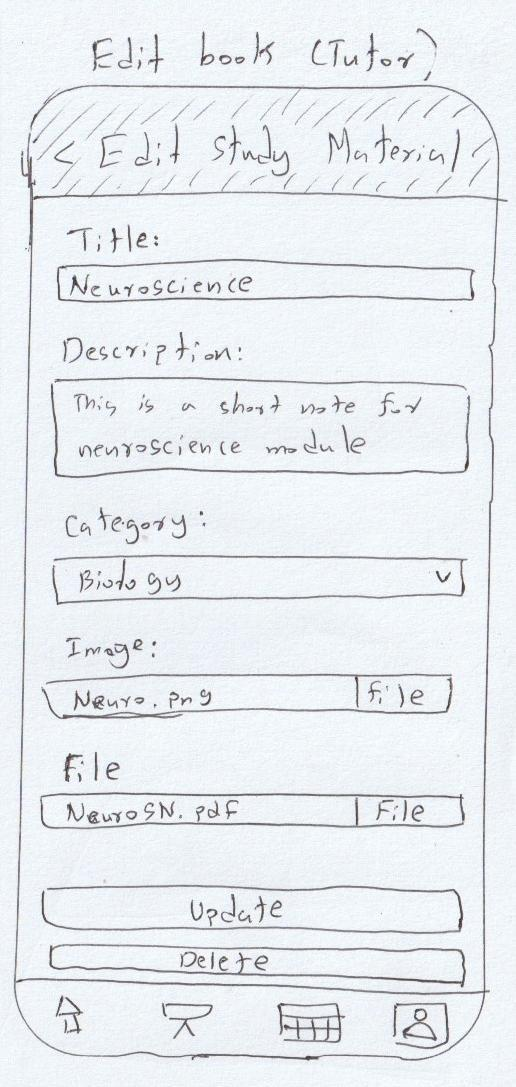 Edit book (Tutor)
< Edit study Material
Title:
Neuroscience
Description:
This is a short note for
neuroscience module
Category:
Biology
Image:
Neuro.png
file
File
NeuroSN.pdf
File
Update
Delete